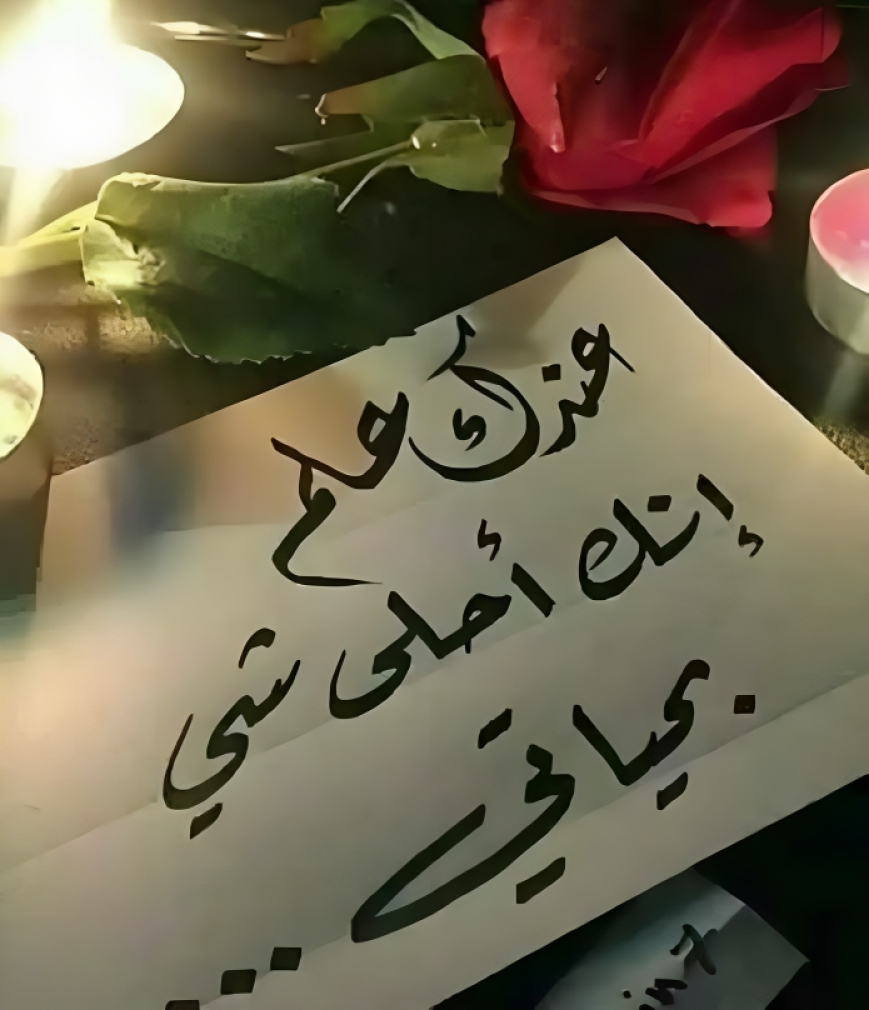 عندك علم
إنك أحلى شي
بحياتي ...